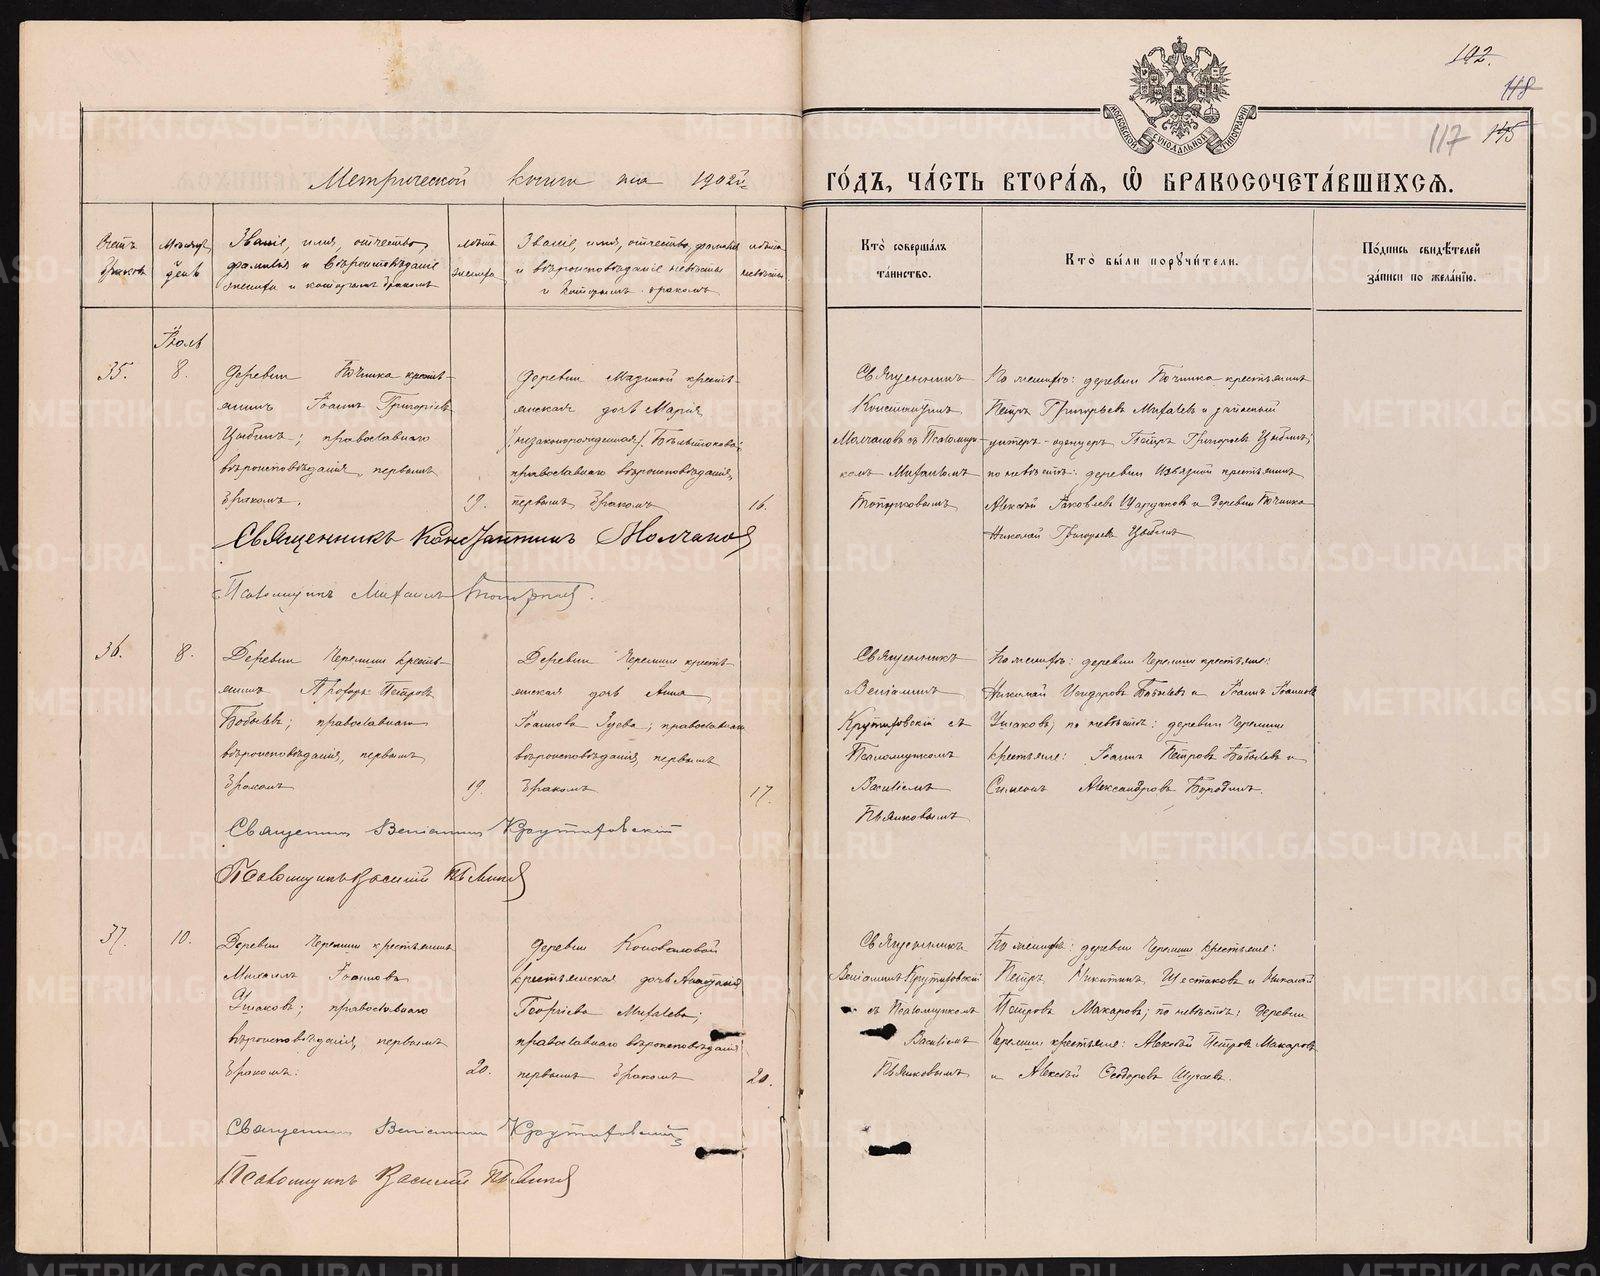 192.
118
117 145
Метрической книги на 1902й
го́дъ, ча́сть втора́я, ѽ бракосочета́вшихся.
Счетъ браковъ
Мѣсяцъ и день
Званіе, имя, отчество,
фамилія и вѣроисповѣданіе
жениха и которымъ бракомъ
лѣта
жениха
Званіе, имя, отчество, фамилія
и вѣроисповѣданіе невѣсты
и которымъ бракомъ
лѣта
невѣсты
Кто̀ соверша́лъ
та́инство.
Кто̀ бы́ли порꙋчи́тели.
По́дпись свидѣ́телей
за́писи по жела́нїю.
Іюль
35.
8.
Деревни Починка кресть-
янинъ Іоаннъ Григорьевъ
Цыбинъ; православнаго
вѣроисповѣданія, первымъ
бракомъ.
19.
деревни крестъ-
янская дочь Марія
/незаконорожденная/
православнаго вѣроисповѣданія,
первымъ бракомъ
16.
Священникъ
Константинъ
Молчановъ съ Псаломщи-
комъ Михаиломъ
Топорковымъ
По женихѣ: деревни Починка крестьянинъ
Петръ Григорьевъ Михалевъ и запасный
унтеръ-офицеръ Петръ Григорьевъ Цыбинъ;
по невѣстѣ: деревни крестьянинъ
Алексѣй Яковлевъ и деревни Починка
Николай Григорьевъ Цыбинъ
Священникъ Константинъ Молчановъ
Псаломщикъ Михаилъ Топорковъ.
36.
8.
Деревни Черемши кресть-
янинъ Петровъ
Бобылевъ; православнаго
вѣроисповѣданія, первымъ
бракомъ
19.
Деревни Черемши кресть-
янская дочь Анна
Іоаннова Гусева; православнаго
вѣроисповѣданія, первымъ
бракомъ
17.
Священникъ
Веніаминъ
Крутиховскій съ
Псаломщикомъ
Василіемъ
Пьянковымъ
По женихѣ: деревни Черемши крестьяне:
Николай Исидоровъ Бобылевъ и Іоаннъ Іоанновъ
Ушаковъ; по невѣстѣ: деревни Черемши
крестьяне: Іоаннъ Петровъ Бобылевъ и
Симеонъ Александровъ Бородинъ.
Священникъ Веніаминъ Крутиховскій
Псаломщикъ Василій Пьянковъ
37.
10.
Деревни Черемши крестьянинъ
Михаилъ Іоанновъ
Ушаковъ; православнаго
вѣроисповѣданія, первымъ
бракомъ.
20.
деревни Коноваловой
крестьянская дочь
Георгіева Михалева;
православнаго вѣроисповѣданія
первымъ бракомъ
20.
Священникъ
Веніаминъ Крутиховскій
съ Псаломщикомъ
Василіемъ
Пьянковымъ
По женихѣ: деревни Черемши крестьяне:
Петръ Никитинъ Шестаковъ и Николай
Петровъ Макаровъ; по невѣстѣ: деревни
Черемши крестьяне: Алексѣй Петровъ Макаровъ
и Алексѣй Ѳеодоровъ
Священникъ Веніаминъ Крутиховскій
Псаломщикъ Василій Пьянковъ
METRIKI.GASO-URAL.RU